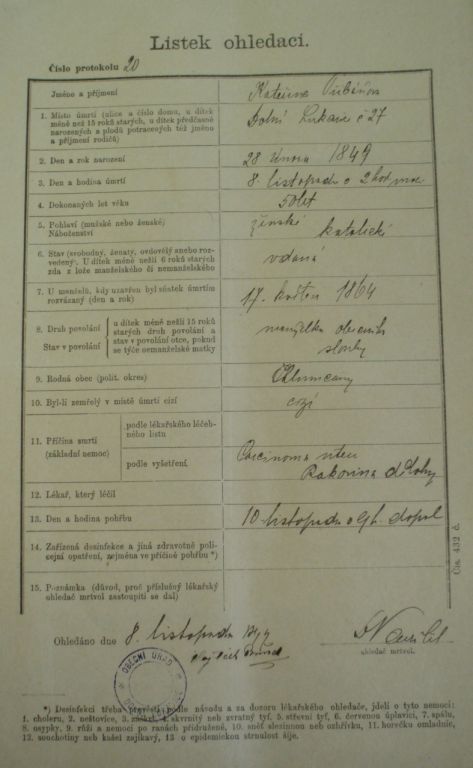 Lístek ohledací.
Číslo protokolu 20
Jméno a příjmení
1. Místo úmrtí (ulice a číslo domu, u dítek
méně než 15 roků starých, u dítek předčasně
narozených a plodů potracených též jméno
a příjmení rodičů)
Dolní Lukavice č 27
2. Den a rok narození
28 února 1849
3. Den a hodina úmrtí
8. listopadu o 2 hod
4. Dokonaných let věku
50 let
5. Pohlaví (mužské nebo ženské)
Náboženství
ženské katolické
6. Stav (svobodný, ženatý, ovdovělý anebo roz-
vedený. U dítek méně nežli 6 roků starých
zda z lože manželského či nemanželského
vdaná
7. U manželů, kdy uzavřen byl sňatek úmrtím
rozvázaný (den a rok)
17. květen 1864
8. Druh povolání
Stav v povolání
u dítek méně nežli 15 roků
starých druh povolání a
stav v povolání otce, pokud
se týče nemanželské matky
manželka obecního
sluhy
9. Rodná obec (polit. okres)
Chlumčany
10. Byl-li zemřelý v místě úmrtí cizí
cizí
11. Příčina smrti
(základní nemoc)
podle lékařského léčeb-
ného listu
podle vyšetření.
Carcinoma uteri
Rakovina dělohy
12. Lékař, který léčil
13. Den a hodina pohřbu
10. listopadu o 9h. dopol
14. Zařízená desinfekce a jiná zdravotně poli-
cejní opatření, zejména ve příčině pohřbu *)
15. Poznámka (důvod, proč příslušný lékařský
ohledač mrtvol zastoupiti se dal)
Čís. 432 č.
Ohledáno dne 8. listopadu
ohledač mrtvol.
OBECNÍ ÚŘAD
*) Desinfekci třeba provésti podle návodu a za dozoru lékařského ohledače, jdeli o tyto nemoci:
1. choleru, 2. neštovice, 3. záškrt, 4. skvrnitý neb zvratný tyf. 5. střevní tyf, 6. červenou úplavici, 7. spálu,
8. osypky, 9. růži a nemoci po ranách přidružené, 10. sněť slezinnou neb ozhřivku, 11. horečku omladnic,
12. souchotiny neb kašel zajíkavý, 13 o epidemickou strnulost šíje.